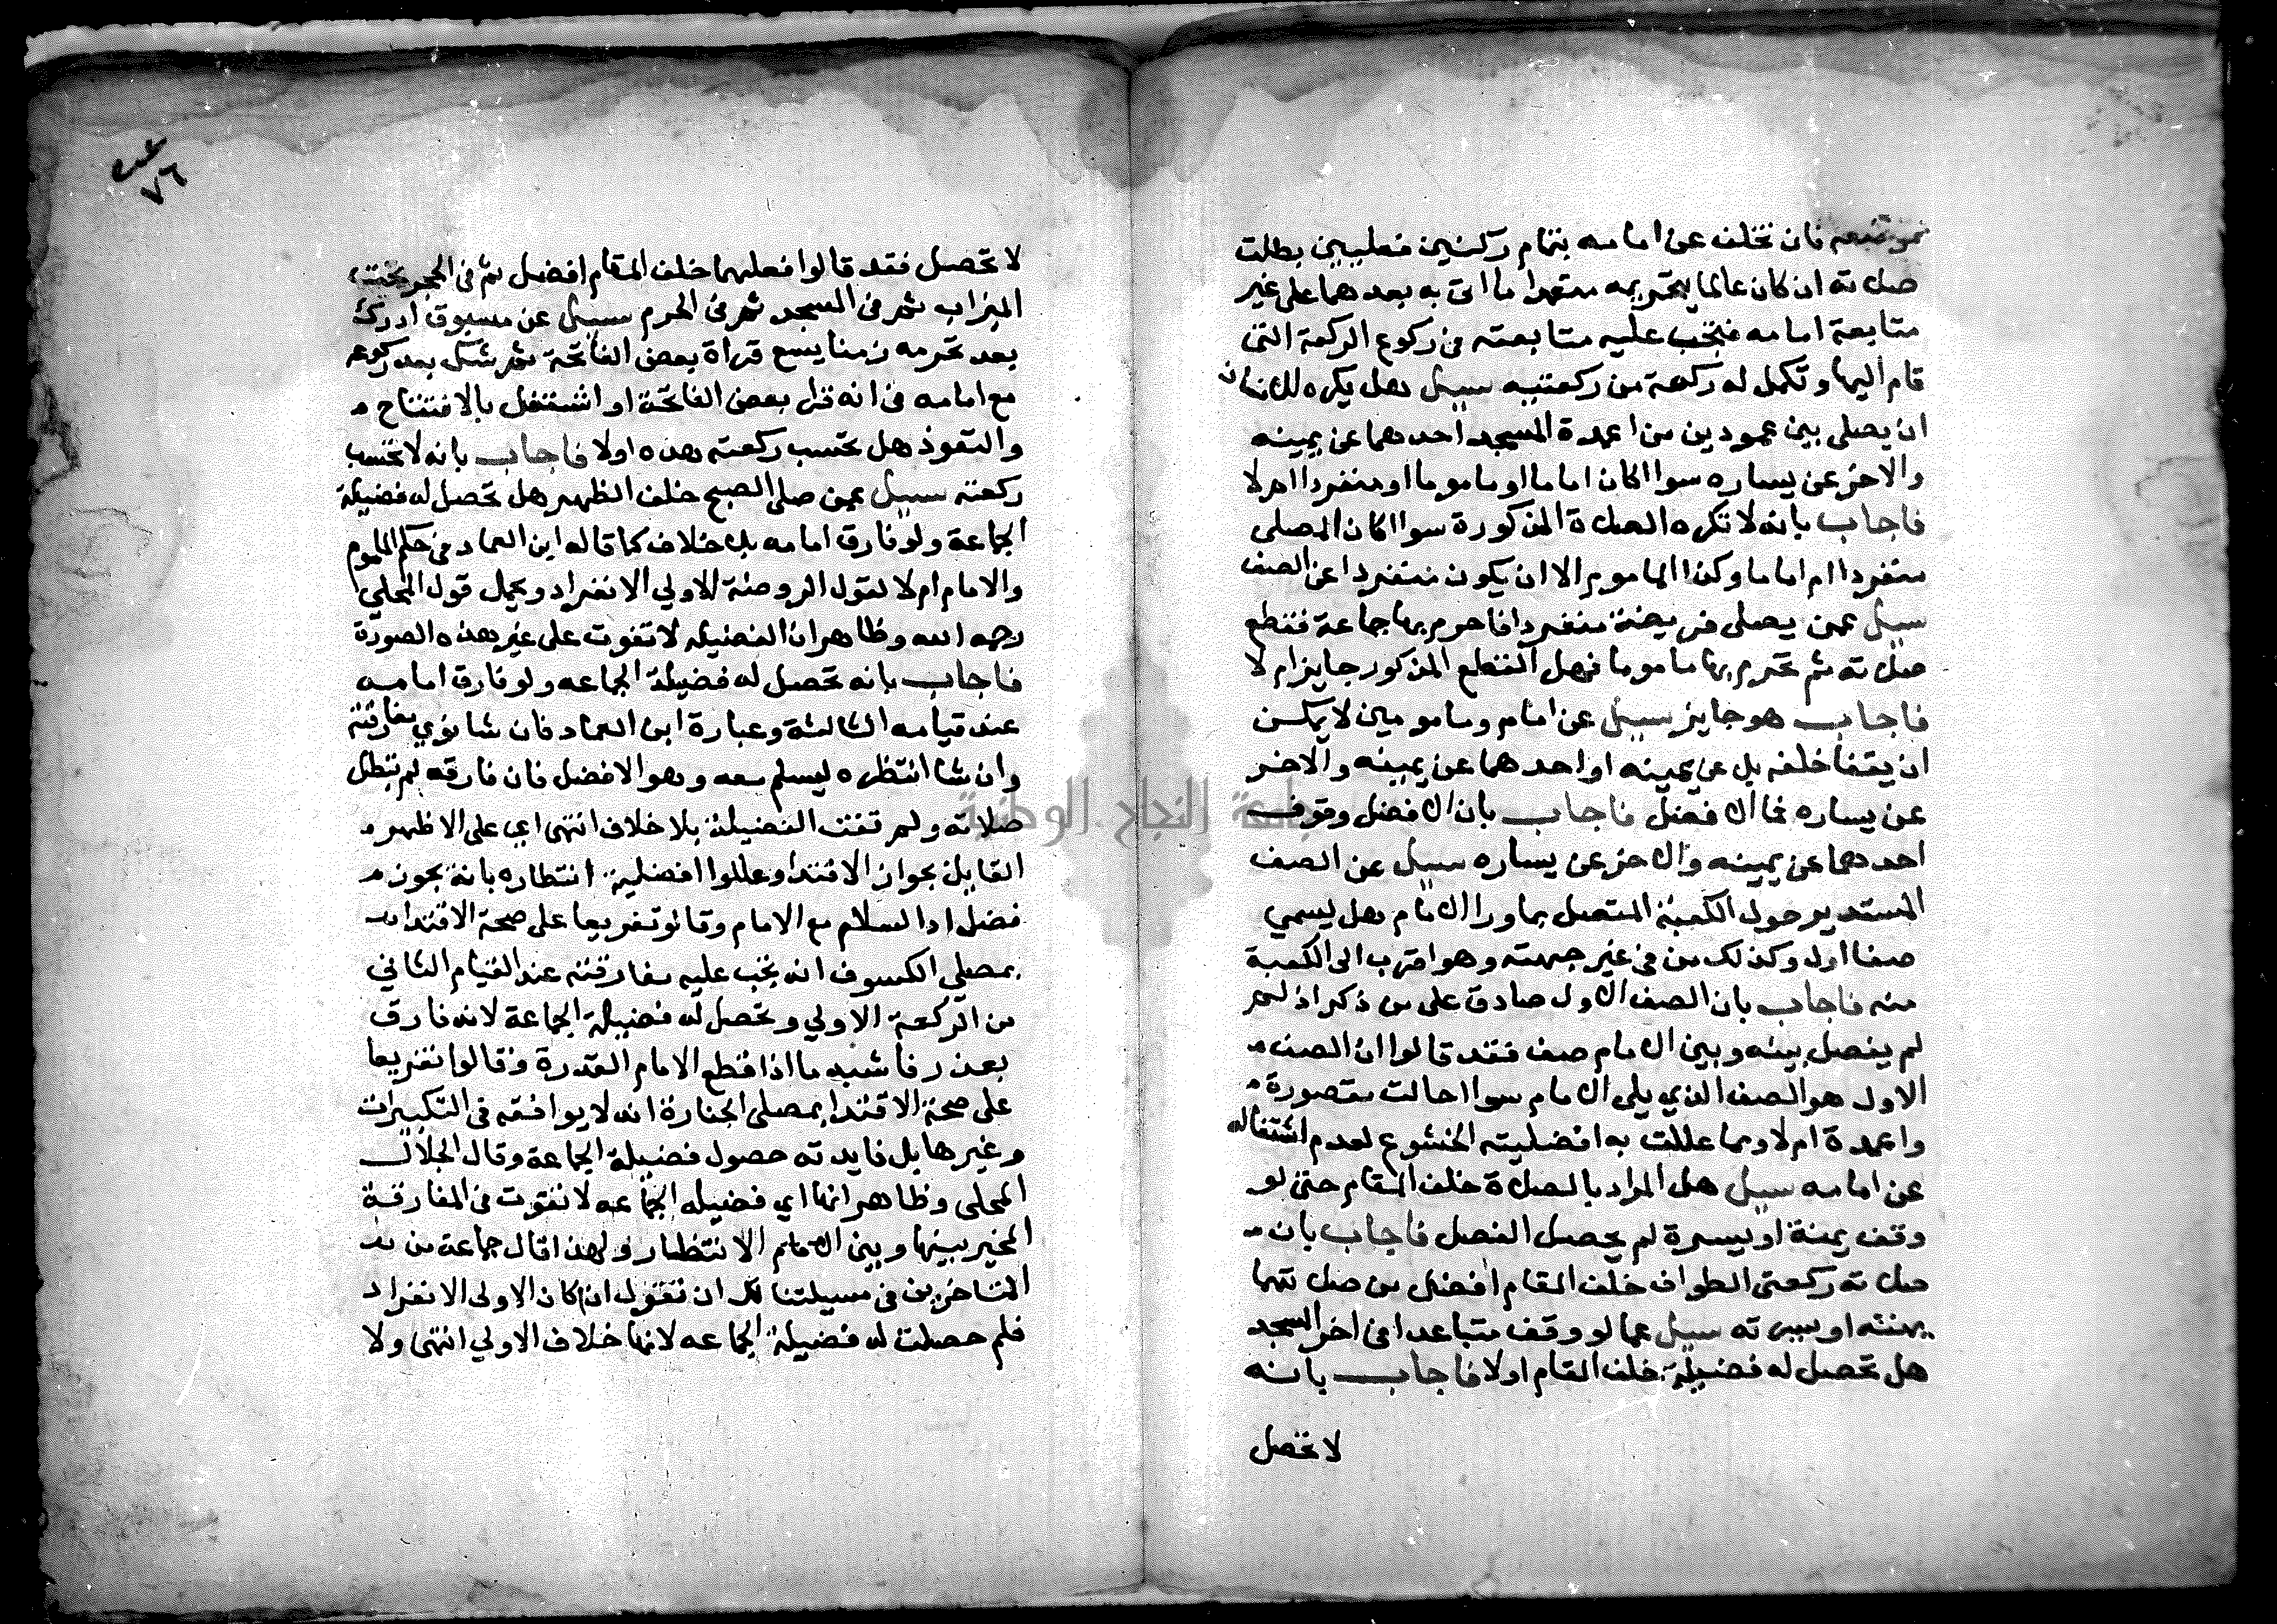 فان تخلف عن امامه بتمام ركنين فعليين بطلت
صلاته ان كان عالما بتحريمه متعمدا ما اتى به بعدهما على غير
متابعة امامه فيجب عليه متابعته في ركوع الركعة التي
قام اليها وتكمل له ركعة من ركعتيه سيل هل يكره للانسان
ان يصلى بين عمودين من اعمدة المسجد احدهما عن يمينه
والاخر عن يساره سوا اكان اماما او ماموما او منفردا ام لا
فاجاب بانه لا تكره الصلاة المذكورة سوا اكان المصلى
منفردا ام اماما وكذا الماموم الا ان يكون منفردا عن الصف
سيل عمن يصلى فريضة منفردا فاحرم بها جماعة فقطع
صلاته ثم تحرم بها ماموما فهل القطع المذكور جايز ام لا
فاجاب هو جايز سيل عن امام ومامومين لا يمكن
ان يقفا خلفه بل عن يمينه او احدهما عن يمينه والاخر
عن يساره فما الافضل فاجاب بان الافضل وقوف
احدهما عن يمينه والاخر عن يساره سيل عن الصف
المستدير حول الكعبة المتصل بما ورا الامام هل يسمي
صفا اول وكذلك من في غير جهته وهو اقرب الى الكعبة
منه فاجاب بان الصف الاول صادق على من ذكر اذ لم
لم يفصل بينه وبين الامام صف فقد قالوا ان الصف
الاول هو الصف الذي يلى الامام سوا احالت مقصورة
واعمدة ام لا ومما عللت به افضليته الخشوع لعدم اشتغاله
عن امامه سيل هل المراد بالصلاة خلف المقام حتى لو
وقف يمنة او يسرة لم يحصل الفضل فاجاب بان
صلاته ركعتى الطواف خلف المقام افضل من صلاتهما
يمنته او يسرته سيل عما لو وقف متباعدا في اخر المسجد
هل تحصل له فضيلة خلف المقام اولا فاجاب بانه
لا تحصل
٧٦
لا تحصل فقد قالوا فعلهما خلف المقام افضل ثم في الحجر تحت
الميزاب ثم في المسجد ثم في الحرم سيل عن مسبوق ادرك
بعد تحرمه زمنا يسع قراة بعض الفاتحة ثم شك بعد ركوعه
مع امامه في انه قرا بعض الفاتحة او اشتغل بالافتتاح
والتعوذ هل تحتسب ركعته هذه اولا فاجاب بانه لا تحتسب
ركعته سيل عمن صلى الصبح خلف الظهر هل تحصل له فضيلة
الجماعة ولو فارق امامه بلا خلاف كما قاله ابن العماد في حكم الماموم
والامام ام لا لقول الروضة الاولي الانفراد ويحمل قول المحلي
رحمه الله وظاهر ان الفضيلة لا تفوت على غير هذه الصورة
فاجاب بانه تحصل له فضيلة الجماعه ولو فارق امامه
عند قيامه الثالثة وعبارة ابن العماد فان شا نوي مفارقته
وان شا انتظره ليسلم معه وهو الافضل فان فارقه لم تبطل
صلاته ولم تفت الفضيلة بلا خلاف انتهى اي على الاظهر
القايل بجواز الاقتدا وعللوا افضلية انتظاره بانه يجوز
فضل ادا السلام مع الامام وقالو تفريعا على صحة الاقتدا
بمصلي الكسوف انه يجب عليه مفارقته عند القيام الثاني
من الركعة الاولي وتحصل له فضيلة الجماعة لانه فارق
بعذر فاشبه ما اذا قطع الامام القدرة وقالوا تفريعا
على صحة الاقتدا بمصلى الجنازة انه لا يوافقه في التكبيرات
وغيرها بل فايدته حصول فضيلة الجماعة وقال الجلال
المحلى وظاهر انها اي فضيله الجماعه لا تفوت في المفارقة
المخير بينها وبين الانتظار ولهذا قال جماعة من
المتاخرين في مسيلتنا لك ان تقول ان كان الاولى الانفراد
فلم حصلت له فضيلة الجماعه لانها خلاف الاولي انتهى ولا